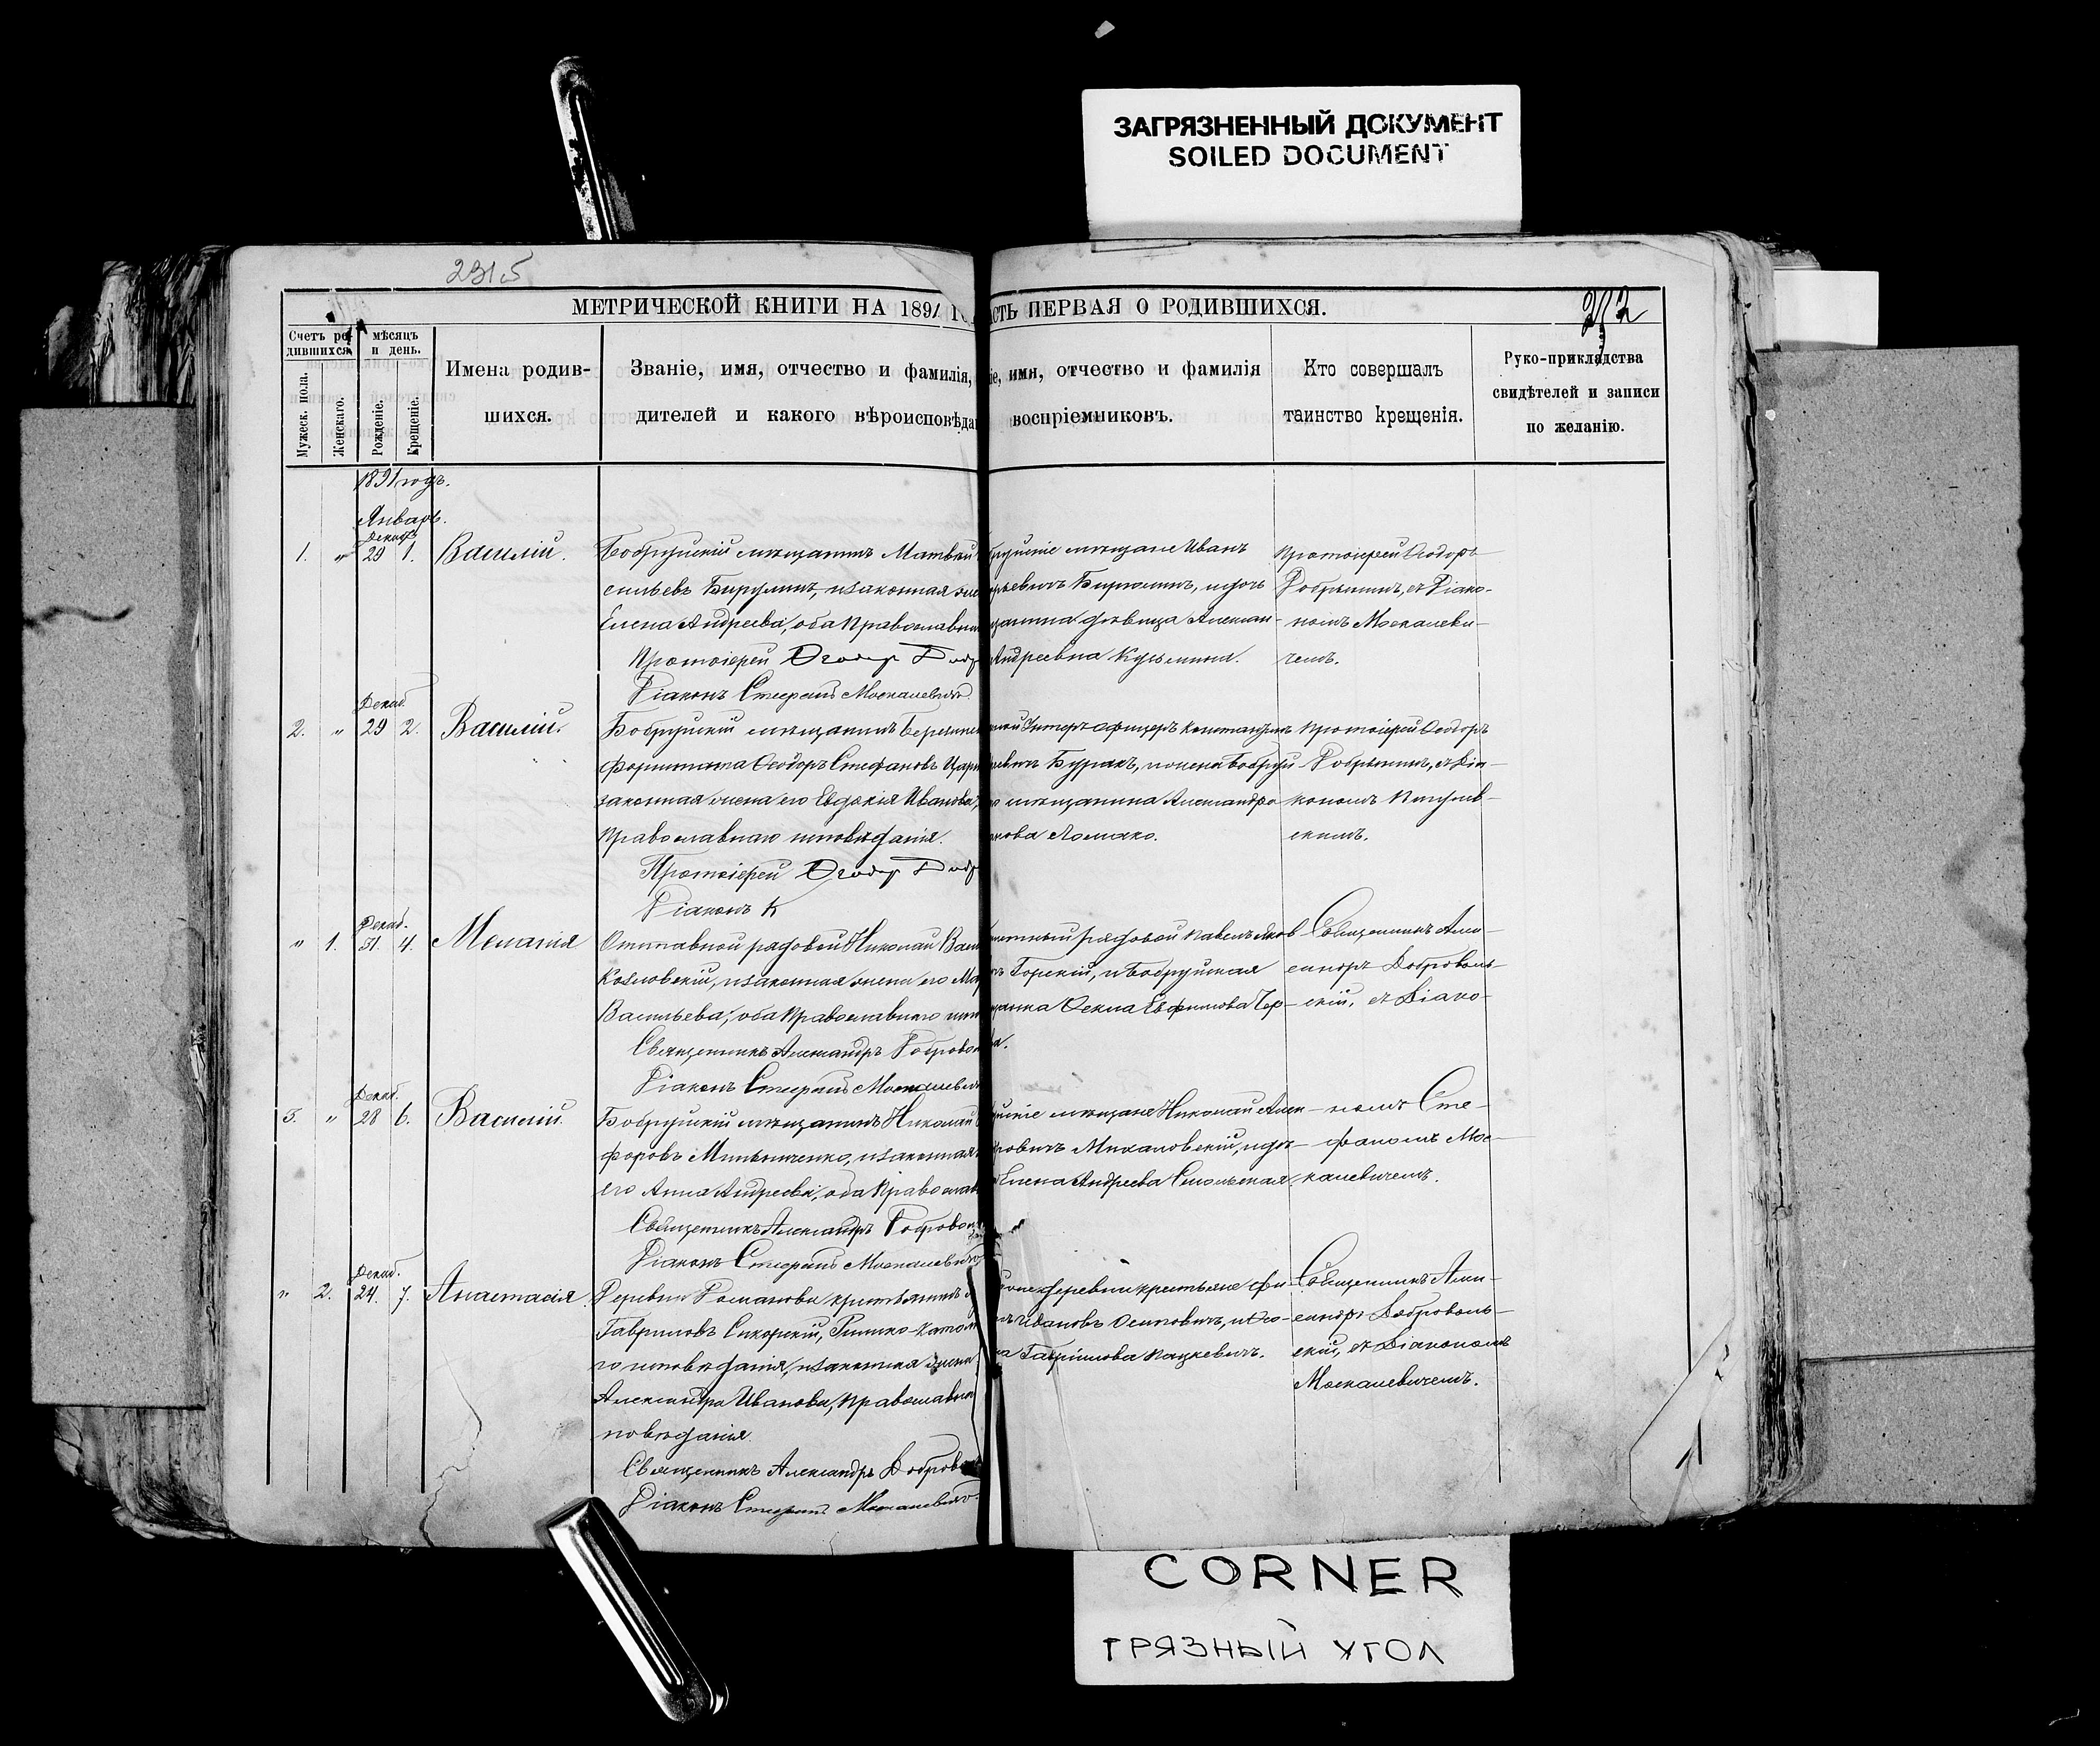 ЗАГРЯЗНЕННЫЙ ДОКУМЕНТ
SOILED DOCUMENT
2315
МЕТРИЧЕСКОЙ КНИГИ НА 1891 
СТЬ ПЕРВАЯ О РОДИВШИХСЯ.
Счетъ ро-
дившихся.
Мужеск. пола.
Женскаго.
мѣсяцъ
и день.
Рожденіе.
Крещеніе.
Имена родив-
шихся.
Званіе, имя, отчество и фамилія,
дителей и какого вѣроисповѣда
іе, имя, отчество и фамилія
воспріемниковъ.
Кто совершалъ
таинство крещенія.
Руко-прикладства
свидѣтелей и записи
по желанію.
1891 годъ.
Январь.
Декаб.
1. " 29 1. Василій.
Бобруйскій мѣщанинъ Матвѣй
сильевъ Бируминъ, и законная же
Елена Андреева, оба Православн
Протоіерей Ѳеодоръ Добр
Діаконъ Стефанъ Москалевичъ.
бруйскіе мѣщане Иванъ
рьевичъ и дочь
щанина дѣвица Алексан-
Андреевна Кузьмина.
Протоіерей Ѳеодоръ
Добрынинъ, съ Діако-
номъ Москалеви-
чемъ.
Декаб.
2. " 29 2. Василій.
Бобруйскій мѣщанинъ Березинск
Форштата Ѳеодоръ Стефановъ Цари
законная жена его Евдокія Иванова,
Православнаго исповѣданія.
Протоіерей Ѳеодоръ Добр
Діаконъ К
Унтеръ-офицеръ Константинъ
евичъ Буракъ, и жена Бобруй-
о мѣщанина Александра
кова Ломако.
Протоіерей Ѳеодоръ
Добрынинъ, съ Діа-
кономъ
скимъ.
Декаб.
" 1. 31. 4. Меланія
Отставной рядовой Николай Васи
Козловскій, и законная жена его Мар
Васильева, оба Православнаго испо
Священникъ Александръ Доброво
Діаконъ Стефанъ Москалевич
рядовой Павелъ Яков
ъ Горскій, и Бобруйская
щанка Ѳекла Евфимова Гор-
а.
Священникъ Але-
ксандръ Доброволь-
скій, съ Діако-
Декаб.
3. " 28 6. Василій.
Бобруйскій мѣщанинъ Николай
форовъ Миньниченко, и законная
его Анна Андреева, оба Православ
Священникъ Александръ Добровол
Діаконъ Стефанъ Москалевичъ
уйскіе мѣщане Николай Алек-
ровичъ Михаловскій, и доч-
Елена Андреева Смольская.
номъ Сте-
фаномъ Мос-
калевичемъ.
Декаб.
" 2. 24. 7. Анастасія.
Деревни Романовки крестьянинъ
Гавриловъ Сикорскій, Римско-Катол
го исповѣданія, и законная жена
Александра Иванова, Православн
повѣданія.
Священникъ Александръ Доброво
Діаконъ Стефанъ Москалевичъ.
деревни крестьяне
ъ Ивановъ Осиповичъ, и
а Гаврилова Пацкевичъ.
Священникъ Але-
ксандръ Доброволь-
скій, съ Діакономъ
Москалевичемъ.
CORNER
ГРЯЗНЫЙ УГОЛ